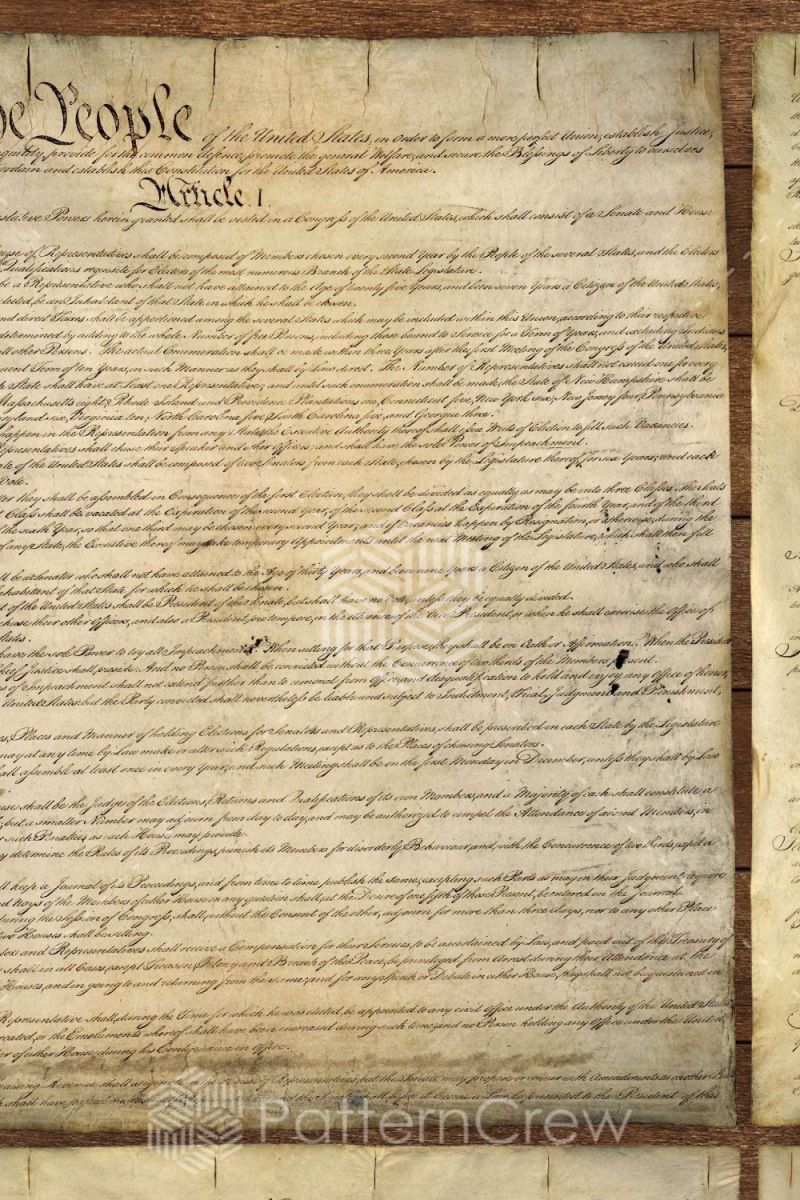 he People of the United States, in Order to form a more perfect Union, establish Justice,
provide for the common defence, promote the general Welfare, and secure the Blessings of Liberty to ourselves
ordain and establish this Constitution for the United States of America.
Article. I.
Powers herein granted shall be vested in a Congress of the United States, which shall consist of a Senate and House
of Representatives shall be composed of Members chosen every second Year by the People of the several States, and the Electors
Qualifications requisite for Electors of the most numerous Branch of the State Legislature.
be a Representative who shall not have attained to the Age of twenty five Years, and been seven Years a Citizen of the United States,
elected, be an Inhabitant of that State in which he shall be chosen.
Taxes shall be apportioned among the several States which may be included within this Union, according to their respective
determined by adding to the whole Number of free Persons, including those bound to Service for a Term of Years, and excluding Indians
all other Persons. The actual Enumeration shall be made within three Years after the first Meeting of the Congress of the United States,
Term of ten Years, in such Manner as they shall by Law direct. The Number of Representatives shall not exceed one for every
State shall have at Least one Representative; and until such enumeration shall be made, the State of New Hampshire shall be
Massachusetts eight, Rhode-Island and Providence Plantations one, Connecticut five, New-York six, New Jersey four, Pennsylvania
six, Virginia ten, North Carolina five, South Carolina five, and Georgia three.
happen in the Representation from any State, the Executive Authority thereof shall issue Writs of Election to fill such Vacancies.
shall chuse their Speaker and other Officers; and shall have the sole Power of Impeachment.
of the United States shall be composed of two Senators from each State, chosen by the Legislature thereof, for six Years; and each
Vote.
they shall be assembled in Consequence of the first Election, they shall be divided as equally as may be into three Classes. The Seats
Class shall be vacated at the Expiration of the second Year, of the second Class at the Expiration of the fourth Year, and of the third
of the sixth Year, so that one third may be chosen every second Year; and if Vacancies happen by Resignation, or otherwise, during the
of any State, the Executive thereof may make temporary Appointments until the next Meeting of the Legislature, which shall then fill
be a Senator who shall not have attained to the Age of thirty Years, and been nine Years a Citizen of the United States, and who shall
Inhabitant of that State for which he shall be chosen.
of the United States shall be President of the Senate, but shall have no Vote, unless they be equally divided.
chuse their other Officers, and also a President pro tempore, in the Absence of the Vice President, or when he shall exercise the Office of
States.
have the sole Power to try all Impeachments. When sitting for that Purpose, they shall be on Oath or Affirmation. When the President
Chief Justice shall preside: And no Person shall be convicted without the Concurrence of two thirds of the Members present.
of Impeachment shall not extend further than to removal from Office, and disqualification to hold and enjoy any Office of honor,
United States: but the Party convicted shall nevertheless be liable and subject to Indictment, Trial, Judgment and Punishment,
Places and Manner of holding Elections for Senators and Representatives, shall be prescribed in each State by the Legislature
may at any time by Law make or alter such Regulations, except as to the Places of chusing Senators.
assemble at least once in every Year, and such Meeting shall be on the first Monday in December, unless they shall by Law
shall be the Judge of the Elections, Returns and Qualifications of its own Members, and a Majority of each shall constitute a
but a smaller Number may adjourn from day to day, and may be authorized to compel the Attendance of absent Members, in
such Penalties as each House may provide.
determine the Rules of its Proceedings, punish its Members for disorderly Behaviour, and, with the Concurrence of two thirds, expel a
keep a Journal of its Proceedings, and from time to time publish the same, excepting such Parts as may in their Judgment require
Nays of the Members of either House on any question shall, at the Desire of one fifth of those Present, be entered on the Journal.
during the Session of Congress, shall, without the Consent of the other, adjourn for more than three days, nor to any other Place
two Houses shall be sitting.
and Representatives shall receive a Compensation for their Services, to be ascertained by Law, and paid out of the Treasury of
shall in all Cases, except Treason, Felony and Breach of the Peace, be privileged from Arrest during their Attendance at the
Houses, and in going to and returning from the same; and for any Speech or Debate in either House, they shall not be questioned in
Representative shall, during the Time for which he was elected, be appointed to any civil Office under the Authority of the United States
created, or the Emoluments whereof shall have been encreased during such time; and no Person holding any Office under the United
of either House during his Continuance in Office.
raising Revenue shall originate in the House of Representatives; but the Senate may propose or concur with Amendments as on other Bills
PatternCrew